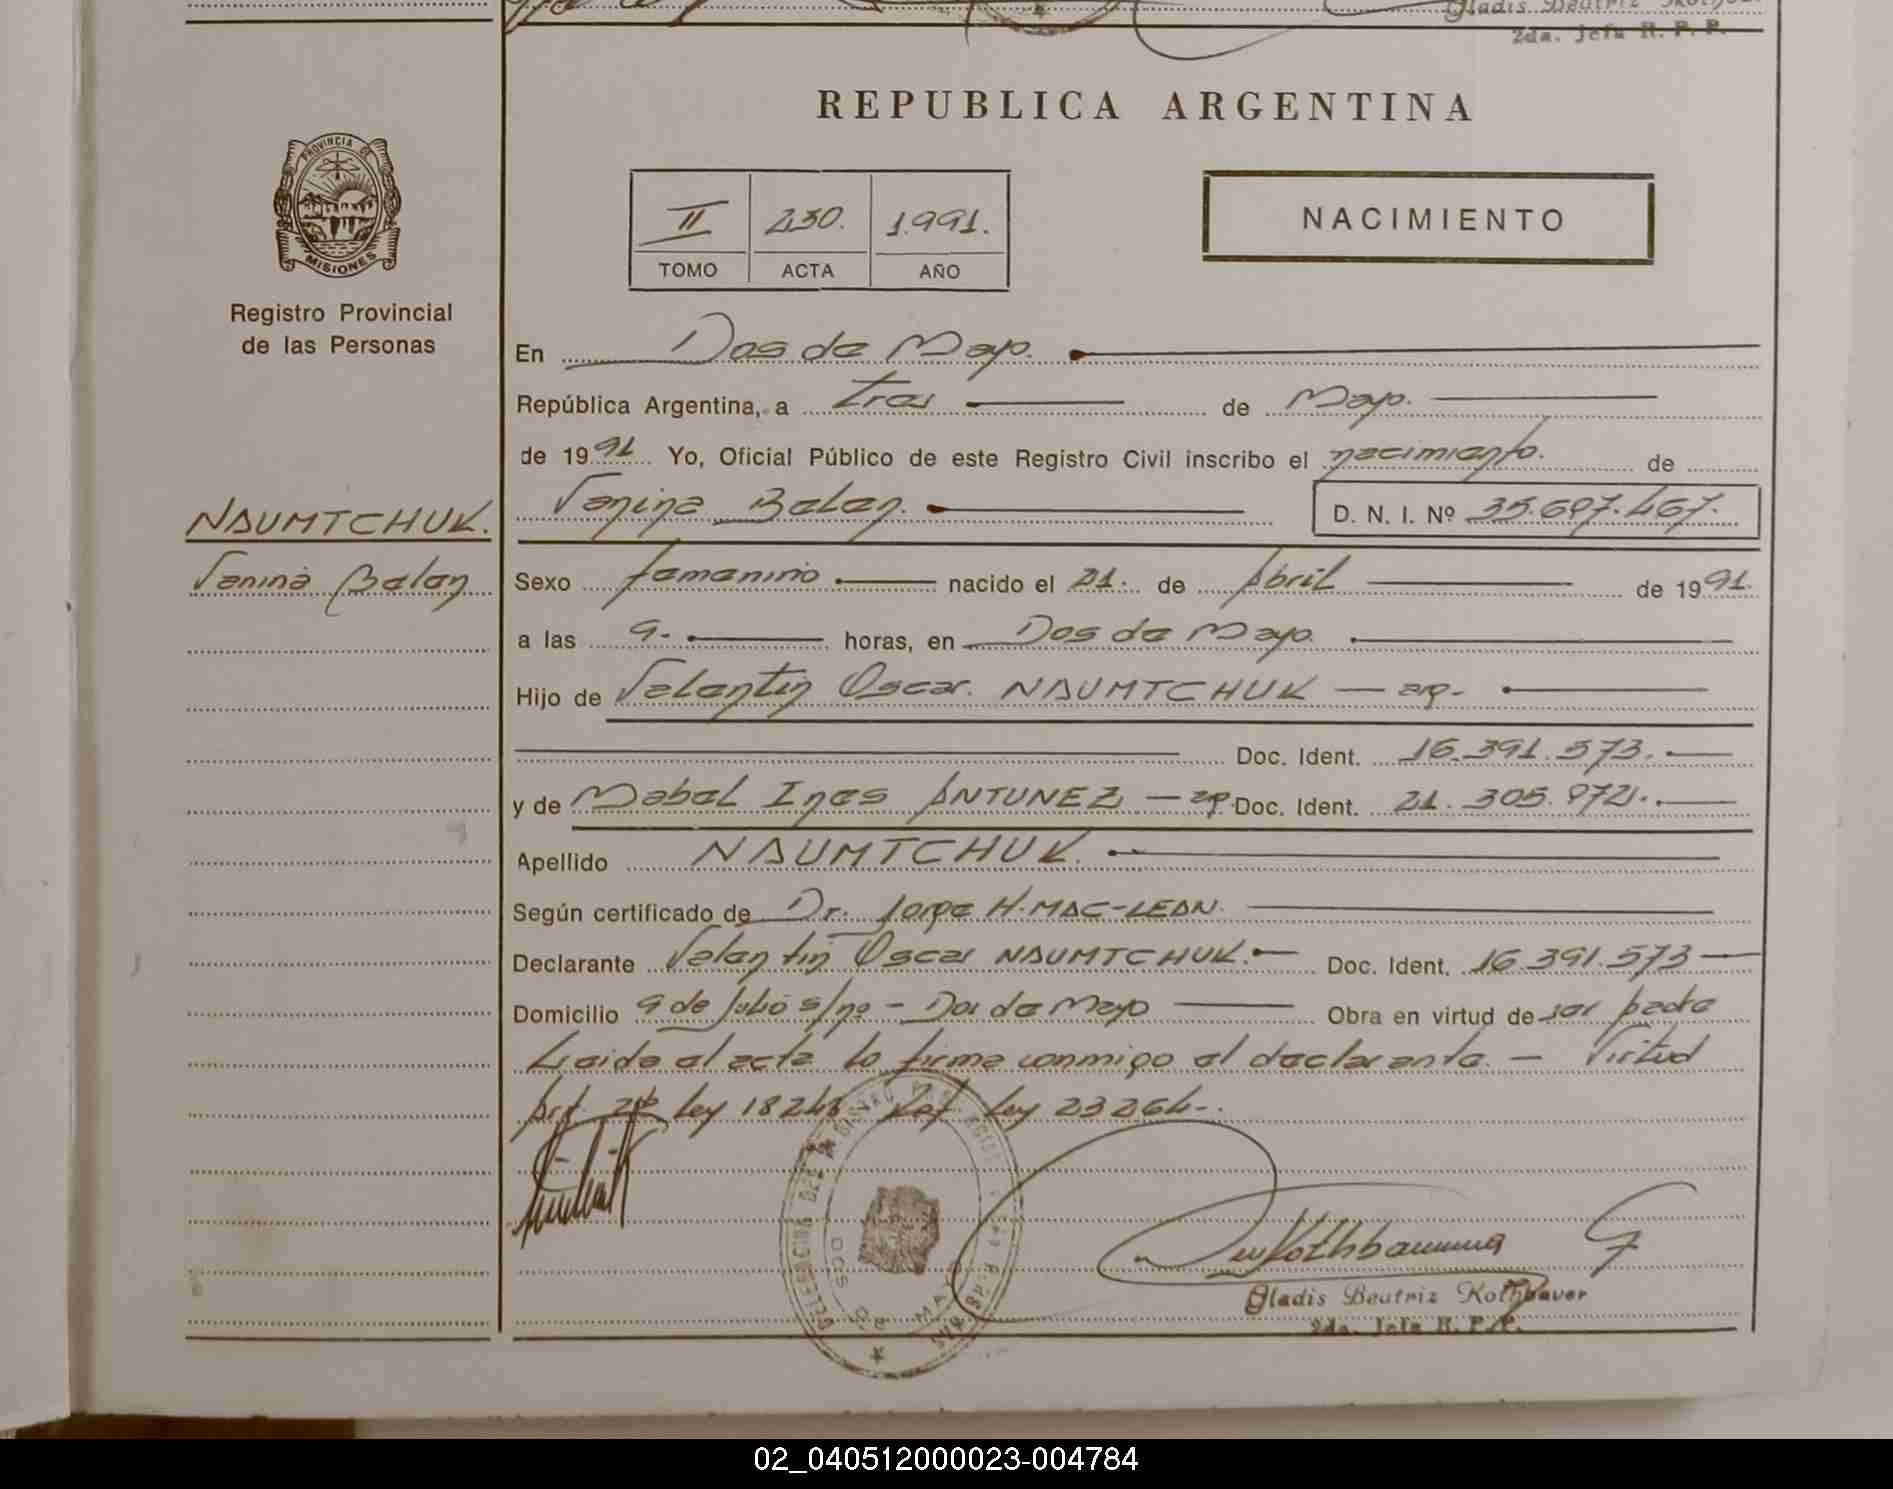 Gladis Beatriz Kothbauer
2da. Jefa R. P. P.
REPUBLICA ARGENTINA
PROVINCIA DE
MISIONES
Registro Provincial
de las Personas
II 230. 1.991.
TOMO ACTA AÑO
NACIMIENTO
En Dos de Mayo.
República Argentina, a tres de Mayo.
de 1991 Yo, Oficial Público de este Registro Civil inscribo el nacimiento. de
NAUMTCHUK.
Vanina Belen
Vanina Belen. D. N. I. Nº 35.697.467.
Sexo femenino nacido el 21. de Abril de 1991.
a las 9. horas, en Dos de Mayo.
Hijo de Valentin Oscar. NAUMTCHUK — arg.
Doc. Ident. 16.391.573.
y de Mabel Ines ANTUNEZ — arg. Doc. Ident. 21.305.972.
Apellido NAUMTCHUK.
Según certificado de Dr. Jorge H. MAC-LEAN.
Declarante Valentin Oscar NAUMTCHUK. Doc. Ident. 16.391.573
Domicilio 9 de Julio s/nº - Dos de Mayo Obra en virtud de ser padre
Leida el acta lo firma conmigo el declarante. — Virtud
Art. 2º Ley 18248 Ley 23264-.
DOS DE MAYO
Gladis Beatriz Kothbauer
2da. Jefa R. P. P.
02_040512000023-004784